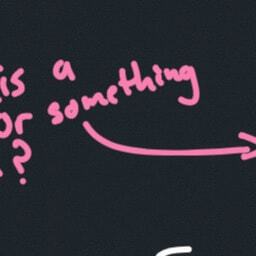 is a
or something
?